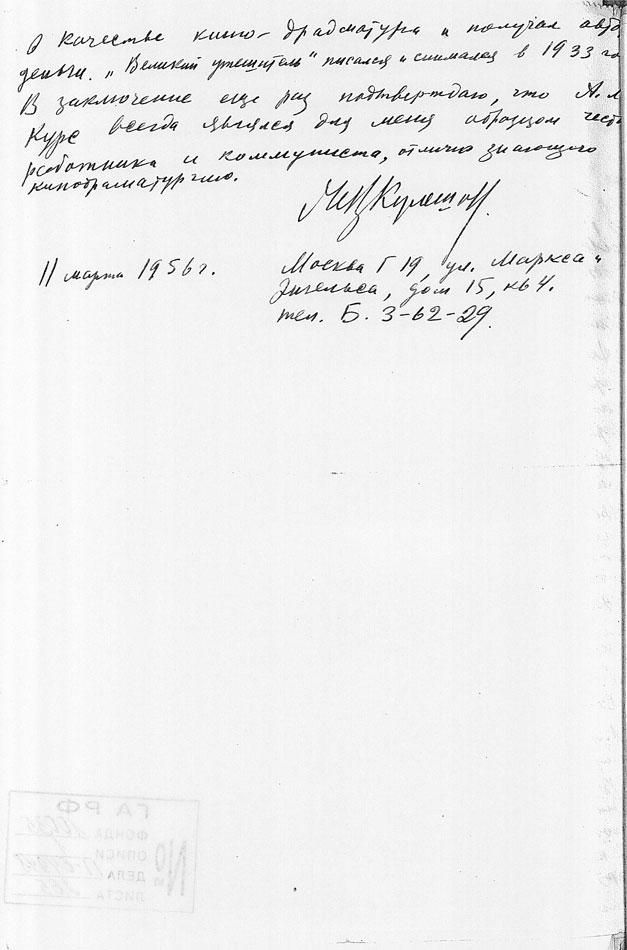 В качестве кино-драматурга и получал авто
деньги. „Великий утешитель" писался и снимался в 1933 го
В заключение еще раз подтверждаю, что А. Л
Курс всегда являлся для меня образцом чест
работника и коммуниста, отлично знающего
кинодраматургию.
Кулешов
11 марта 1956 г.
Москва Г 19, ул. Маркса и
Энгельса, дом 15, кв 4.
тел. Б. 3-62-29.
ГА РФ
ФОНДА
ОПИСИ
ДЕЛА
ЛИСТА
№